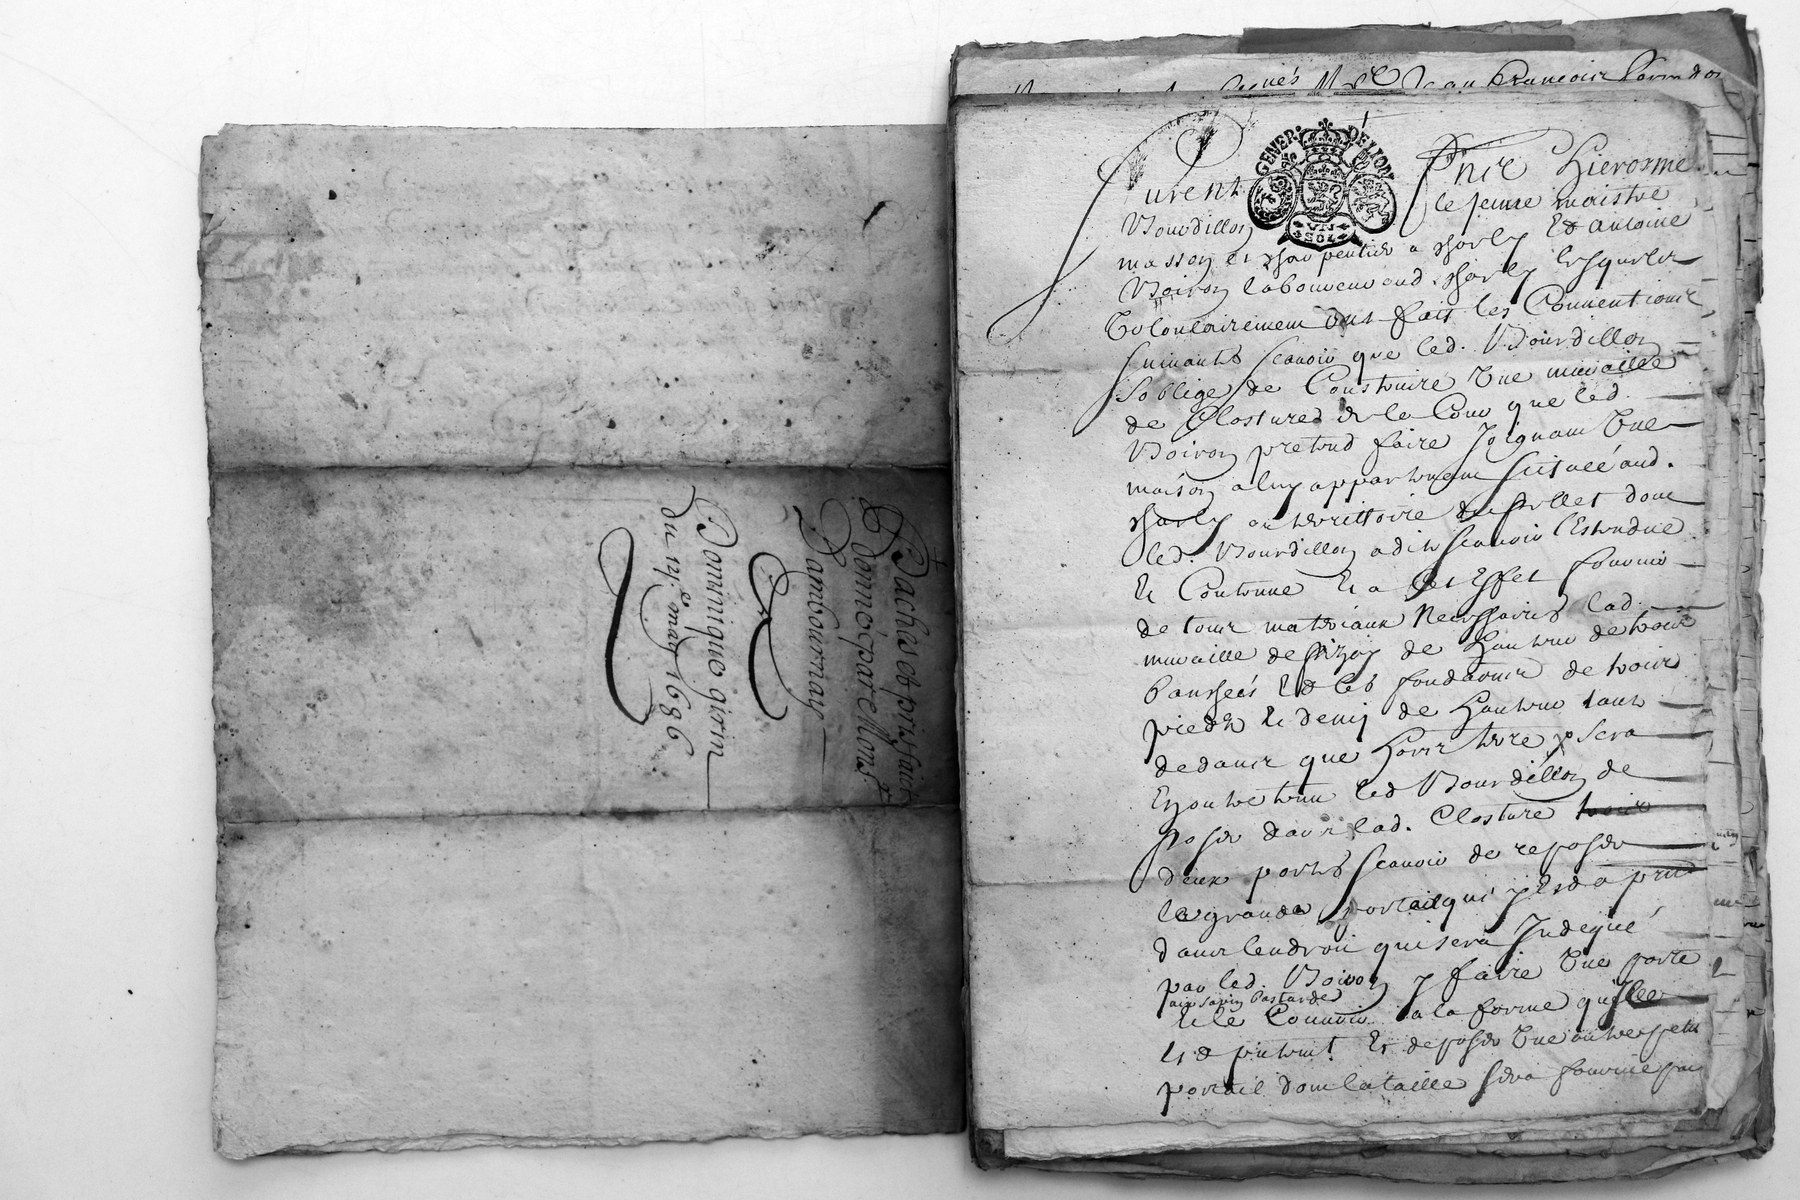 Pachas et prix fait
Donné par Mons.r
Dambournay
Dominique girin
du 14.e may 1686
Jean francois
GENER. DE LION
VN SOL
furent Hierosme
Bourdillon le jeune maistre
masson et charpentier a charly Et antoine
Boiron laboureur aud. charly lesquels
Volontairement ont fait les Conventions
suivants scavoir que led. Bourdillon
soblige de Construire Une muraille
de Closture de la Cour que led.
Boiron pretend faire Joignant Une
maison a luy appartenant scituée aud.
charly au territoire dont
led. Bourdillon a dit scavoir lestendue
Et Contenue Et a cet Effet fournir
de tous materiaux Necessaires lad.
muraille de pizay de hauteur de trois
banchees Et les fondations de trois
pieds Et demy de hauteur tant
dedans que hors terre sera
En outre tenu led Bourdillon de
poser dans lad. Closture
deux portes scavoir de reposer
le grande portail qui y Est a present
dans lendroit qui sera Indiqué
par led. Boiron y faire Une porte
Et le Couvrir a la forme quelle
Est a present Et de poser Une autre petit
portail dont la taille sera fournie par